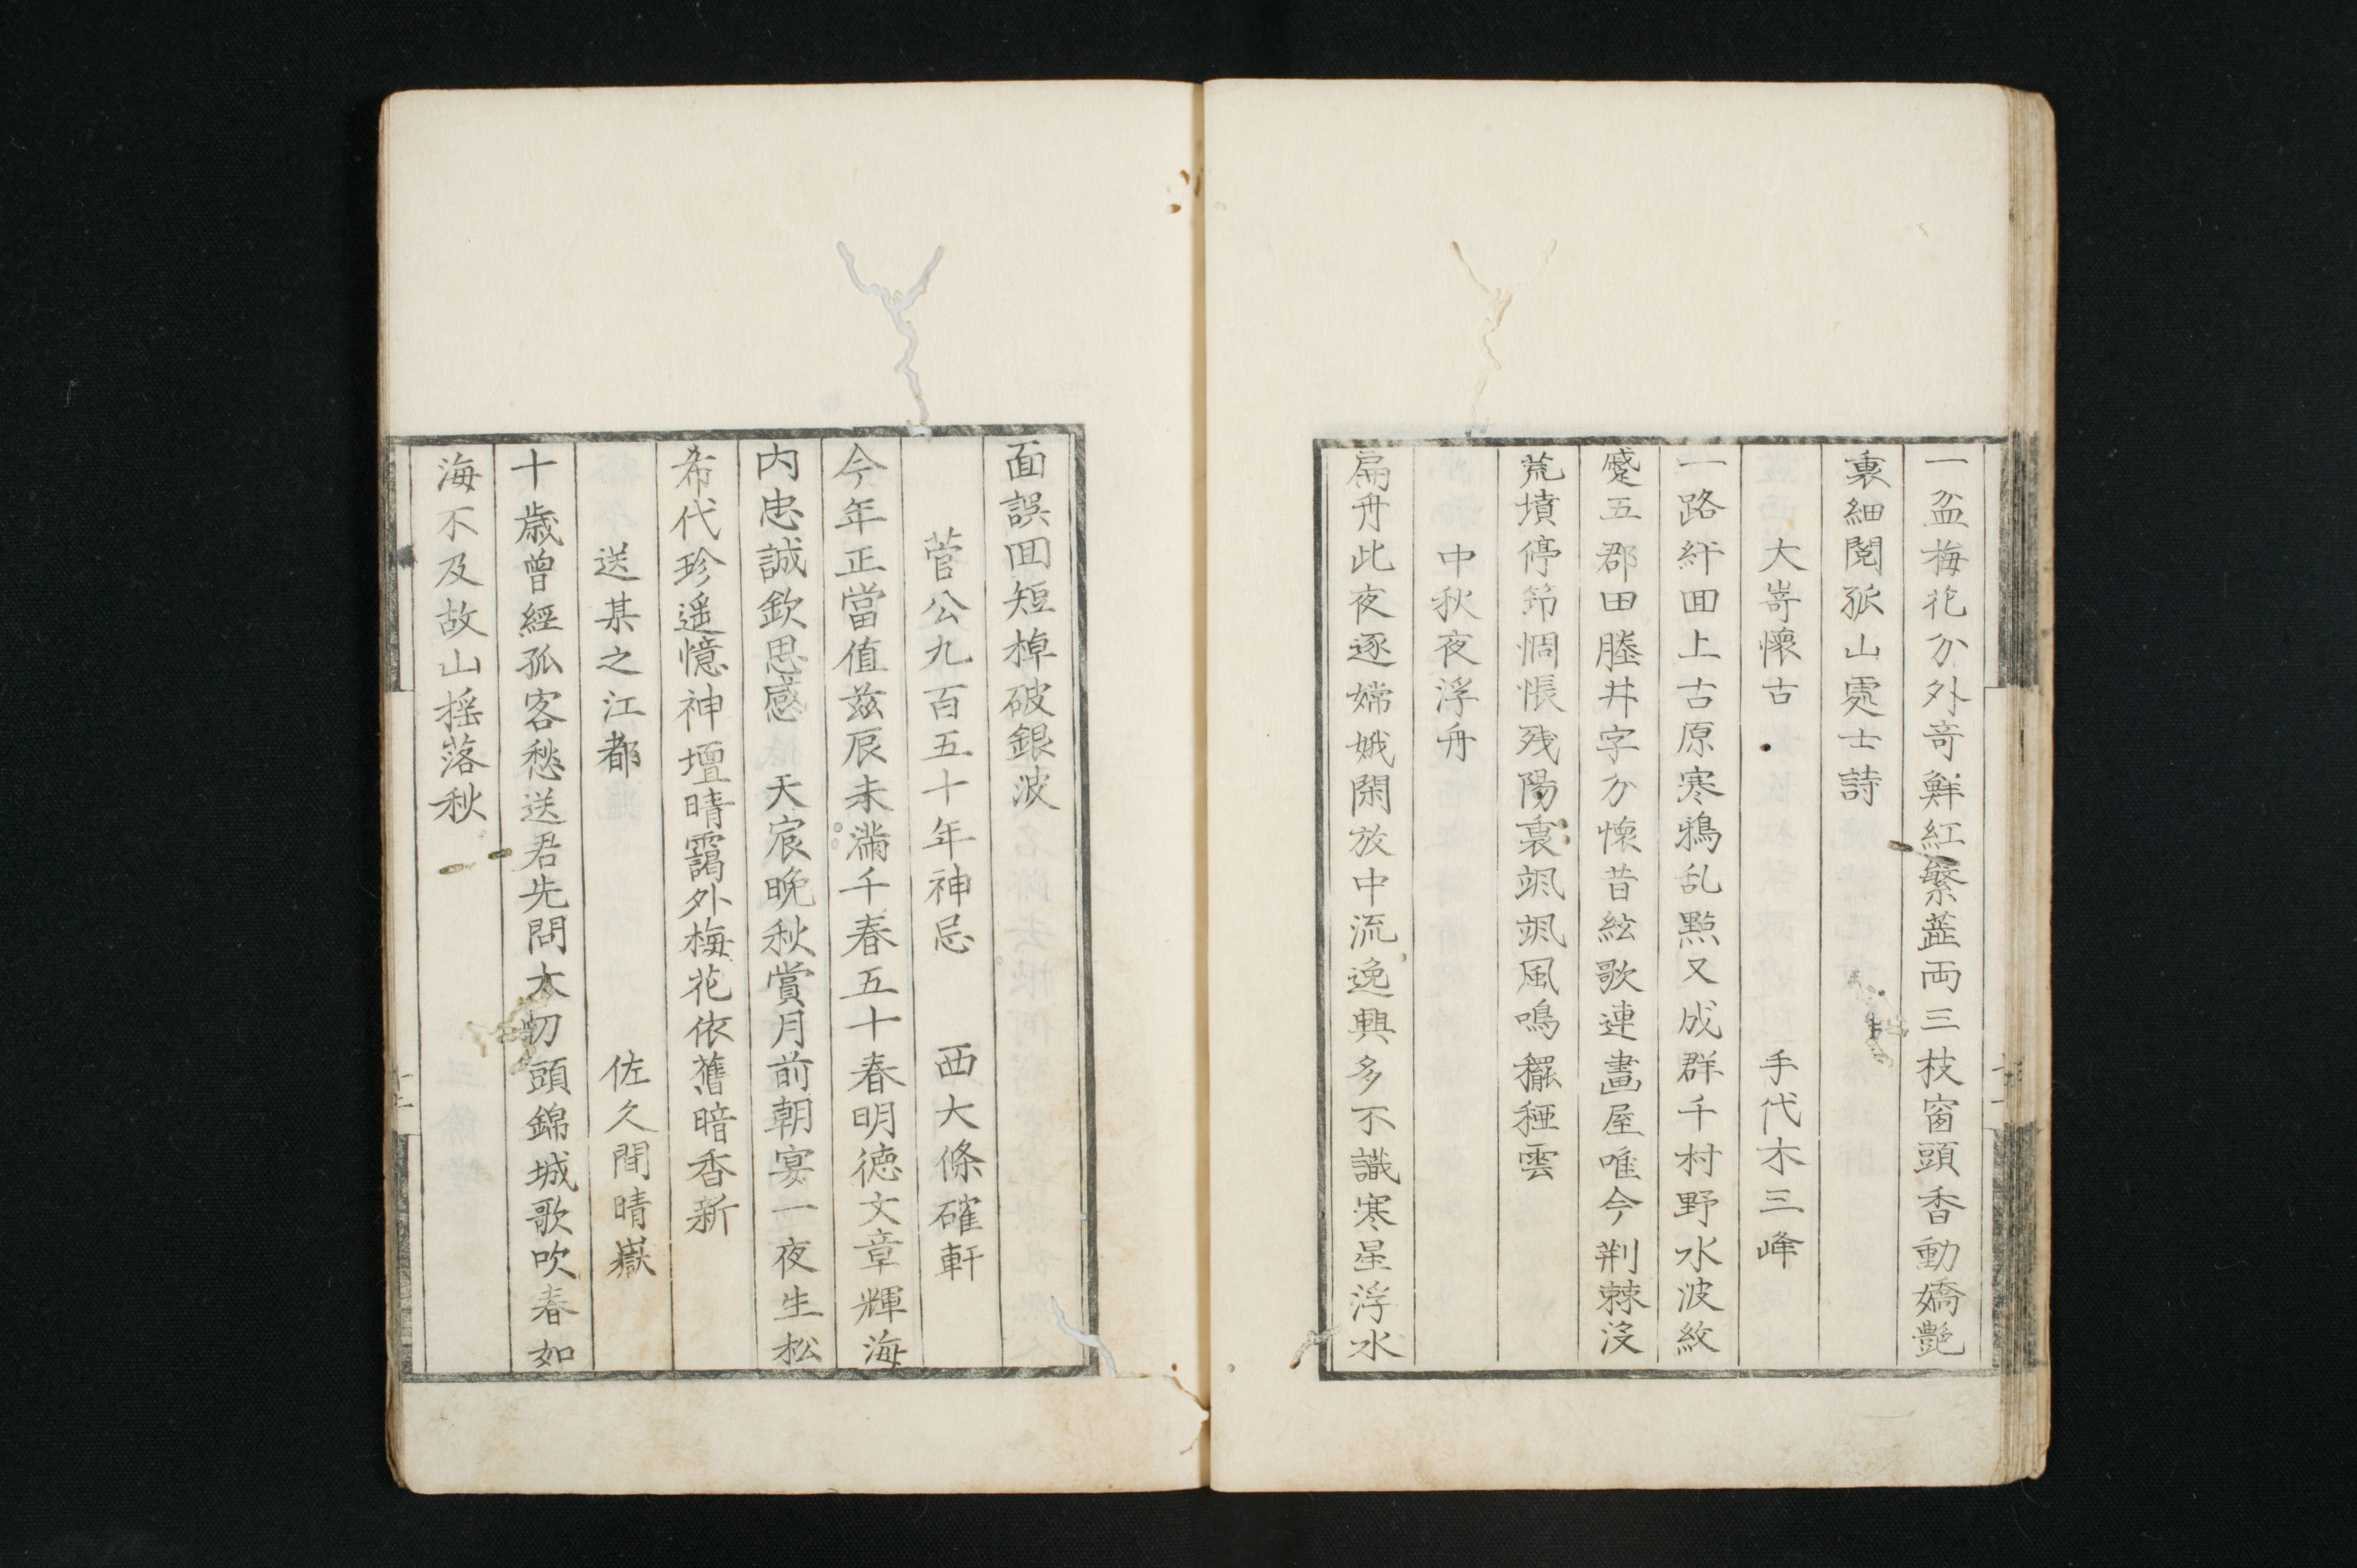 一盆梅花分外奇鮮紅繁蘂両三枝窗頭香動嬌艶
裏細閲孤山處士詩
大嵜懷古　手代木三峰
一路紆囬上古原寒鴉乱點又成群千村野水波紋
蹙五郡田塍井字分懐昔絃歌連畵屋唯今荆棘没
荒墳停筇惆悵残陽裏颯颯風鳴䆉稏雲
中秋夜浮舟
扁舟此夜逐嫦娥閑放中流逸興多不識寒星浮水
面誤囬短棹破銀波
菅公九百五十年神忌　西大條確軒
今年正當值茲辰未滿千春五十春明徳文章輝海
内忠誠欽思感　天宸晩秋賞月前朝宴一夜生松
希代珍遥憶神壇晴靄外梅花依舊暗香新
送某之江都　佐久間晴嶽
十歳曾經孤客愁送君先問大刀頭錦城歌吹春如
海不及故山揺落秋